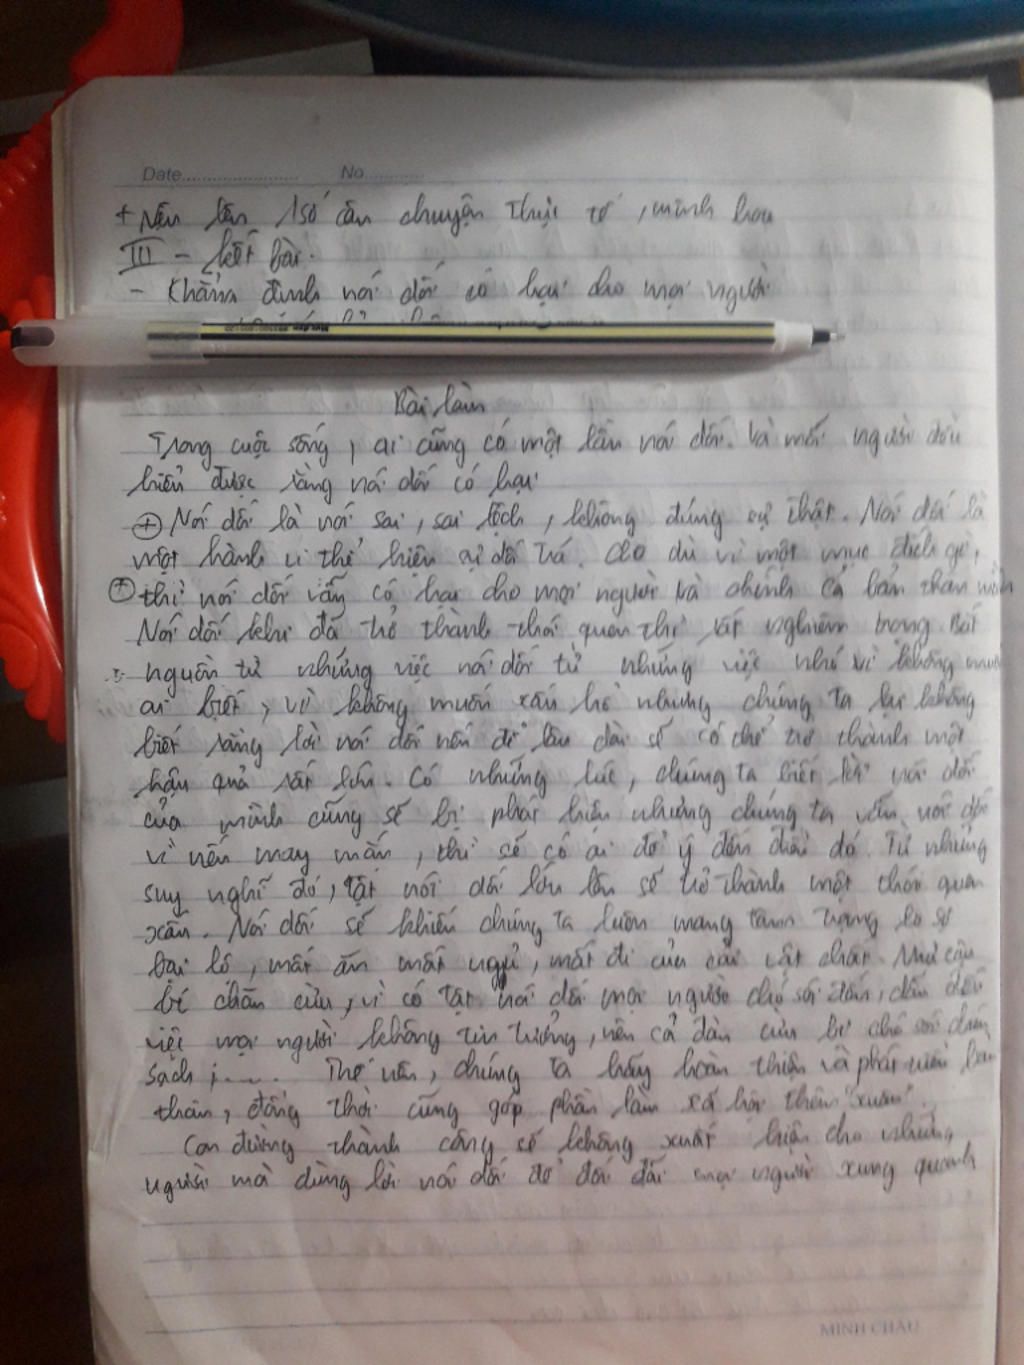 Date........................ No............
+ Nêu lên 1 số câu chuyện thực tế, minh hoạ
III - kết bài.
- Khẳng định nói dối có hại cho mọi người
Bài làm
Trong cuộc sống, ai cũng có một lần nói dối. Và mỗi người đều
hiểu được rằng nói dối có hại
+ Nói dối là nói sai, sai lệch, không đúng sự thật. Nói dối là
một hành vi thể hiện sự dối trá. Cho dù vì một mục đích gì,
+ thì nói dối vẫn có hại cho mọi người và chính cả bản thân mình
Nói dối khi đã trở thành thói quen thì rất nghiêm trọng Bắt
nguồn từ những việc nói dối từ những việc nhỏ vì không muốn
ai biết, vì không muốn xấu hổ nhưng chúng ta lại không
biết rằng lời nói dối nếu để lâu dài sẽ có thể trở thành một
hậu quả rất lớn. Có những lúc, chúng ta biết lời nói dối
của mình cũng sẽ bị phát hiện nhưng chúng ta vẫn nói dối
vì nếu may mắn, thì sẽ có ai để ý đến điều đó. Từ những
suy nghĩ đó, tật nói dối lớn lên sẽ trở thành một thói quen
xấu. Nói dối sẽ khiến chúng ta luôn mang tâm trạng lo sợ
bại lộ, mất ăn mất ngủ, mất đi của cải vật chất. Như cậu
bé chăn cừu, vì có tật nói dối mọi người chó sói đến, dẫn đến
việc mọi người không tin tưởng, nên cả đàn cừu bị chó sói
sạch ;..... Thế nên, chúng ta hãy hoàn thiện và phát triển bản
thân, đồng thời cũng góp phần làm xã hội thêm "xuân".
Con đường thành công sẽ không xuất hiện cho những
người mà dùng lời nói dối để đối đãi mọi người xung quanh
MINH CHÂU